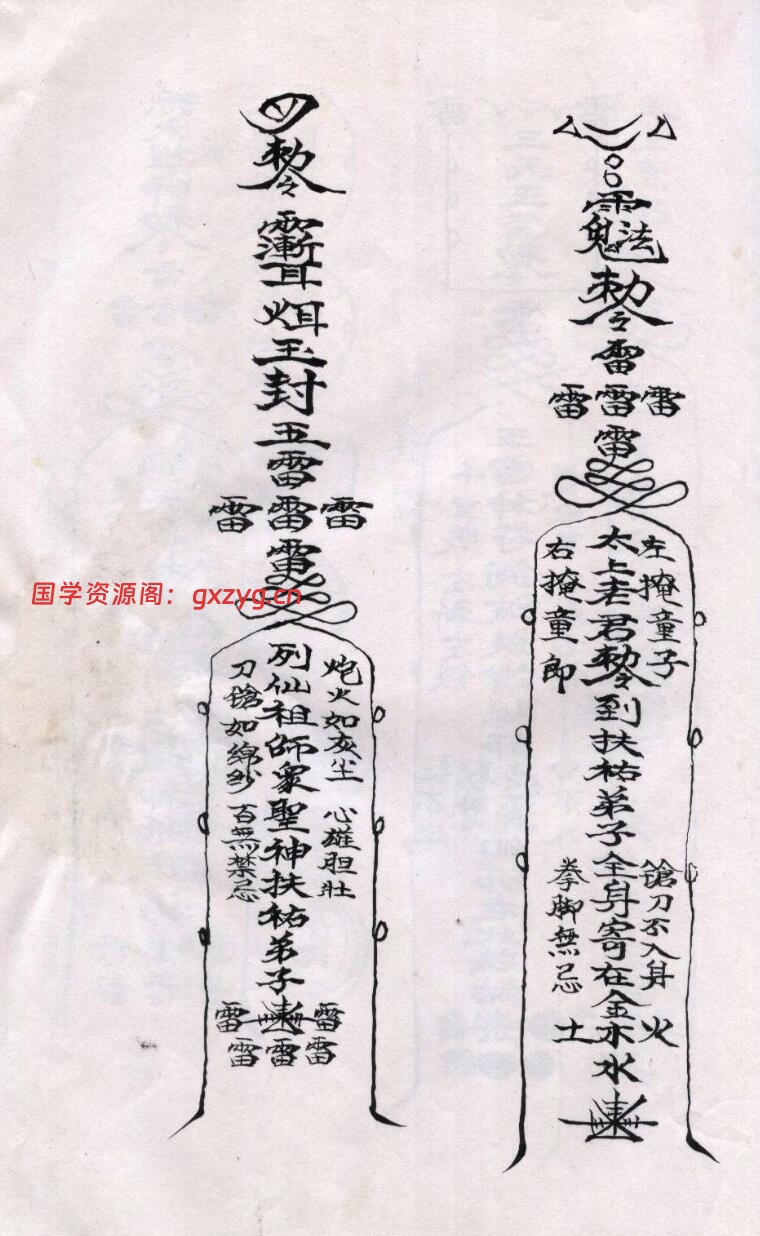 敕令
雷
雷雷雷
雷
左掩童子
太上老君敕令到扶祐弟子全身寄在金木水
右掩童郎
鎗刀不入身 火
拳脚無忌 土
敕令
耳
玉封
五雷
雷雷雷
雷
炮火如灰尘 心雄胆壮
列仙祖師眾聖神扶祐弟子
刀鎗如綿纱 百無禁忌
雷 雷
雷雷雷
国学资源阁：gxzyg.cn